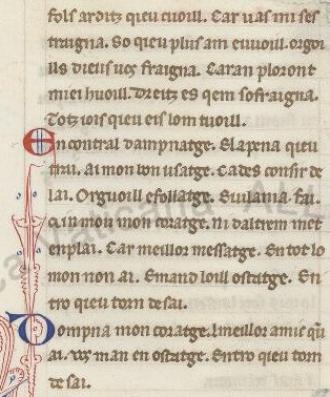 fols arditz qieu cuoill. Car uas mi ses
traigna. so qieu plus am euuoill. orgoi
ills dieus uos fraigna. Caran ploront
miei huoill. Dreitz es qem sofraigna.
Totz iois qieu eis lom tuoill.
En contral dampnatge. Elapena qieu
trai. Ai mon bon usatge. Cades consir de
lai. Orguoill e follatge. Euilania fai.
Qi mou mon coratge. Ni daltrem met
en plai. Car meillor messatge. En tot lo
mon non ai. Emand loill ostatge. En
tro qieu torn de sai.
Dompna mon coratge. lmeillor amic qu
ai. vos man en ostatge. Entro qieu torn
de sai.